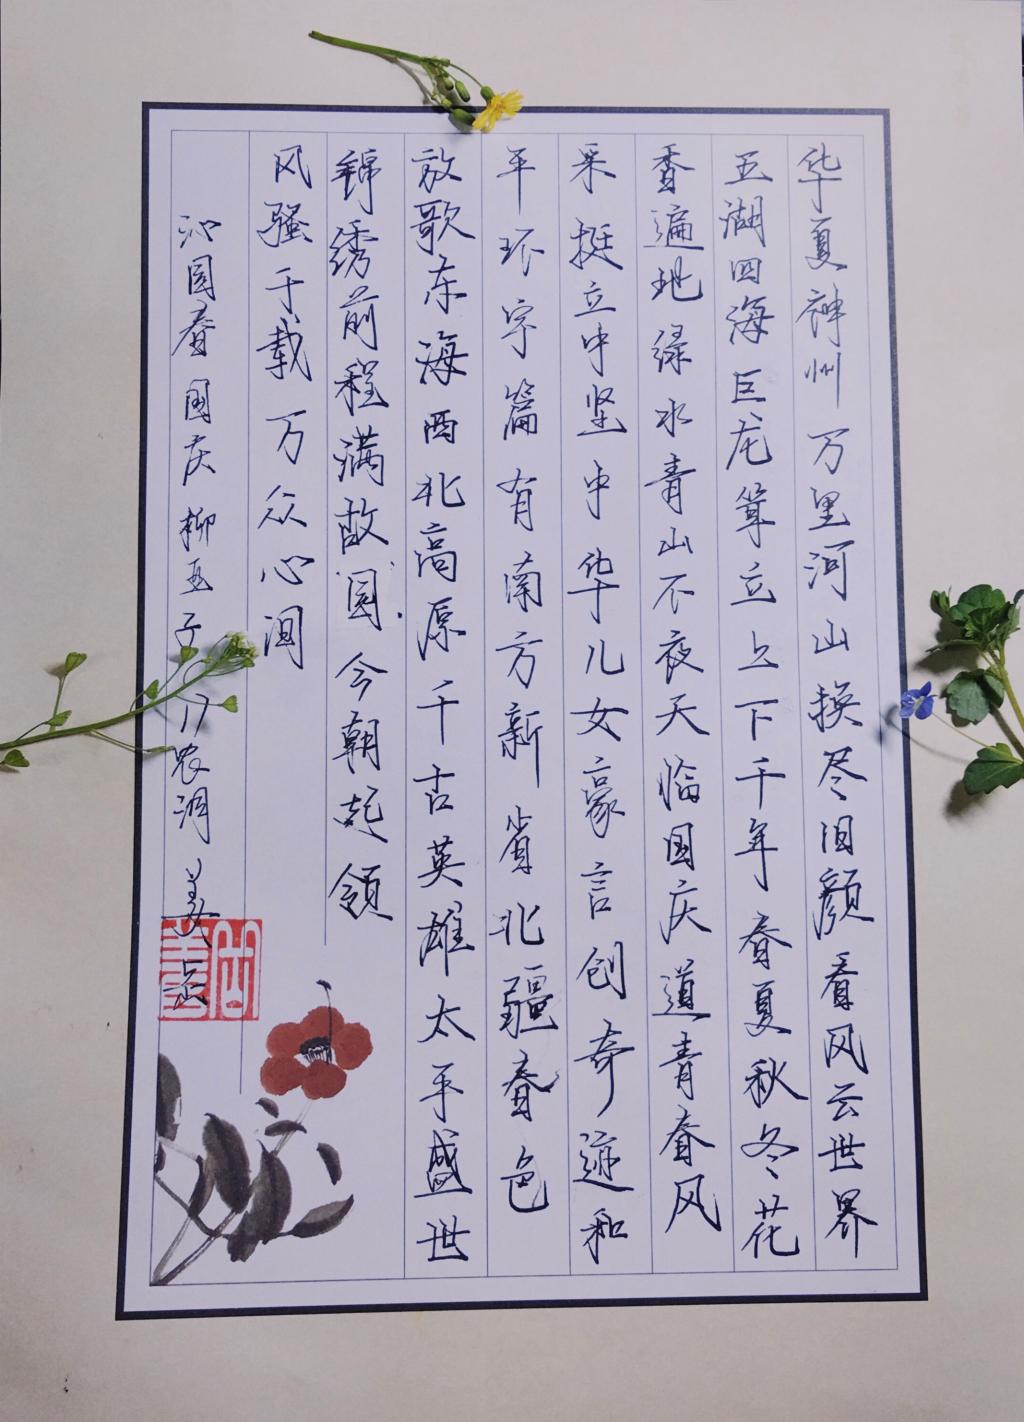 华夏神州万里河山换尽旧颜看风云世界
五湖四海巨龙耸立上下千年春夏秋冬花
香遍地绿水青山不夜天临国庆道青春风
采挺立中坚中华儿女豪言创奇迹和
平环宇篇有南方新省北疆春色
放歌东海西北高原千古英雄太平盛世
锦绣前程满故园今朝起领
风骚千载万众心润
沁园春国庆柳玉子17农润姜